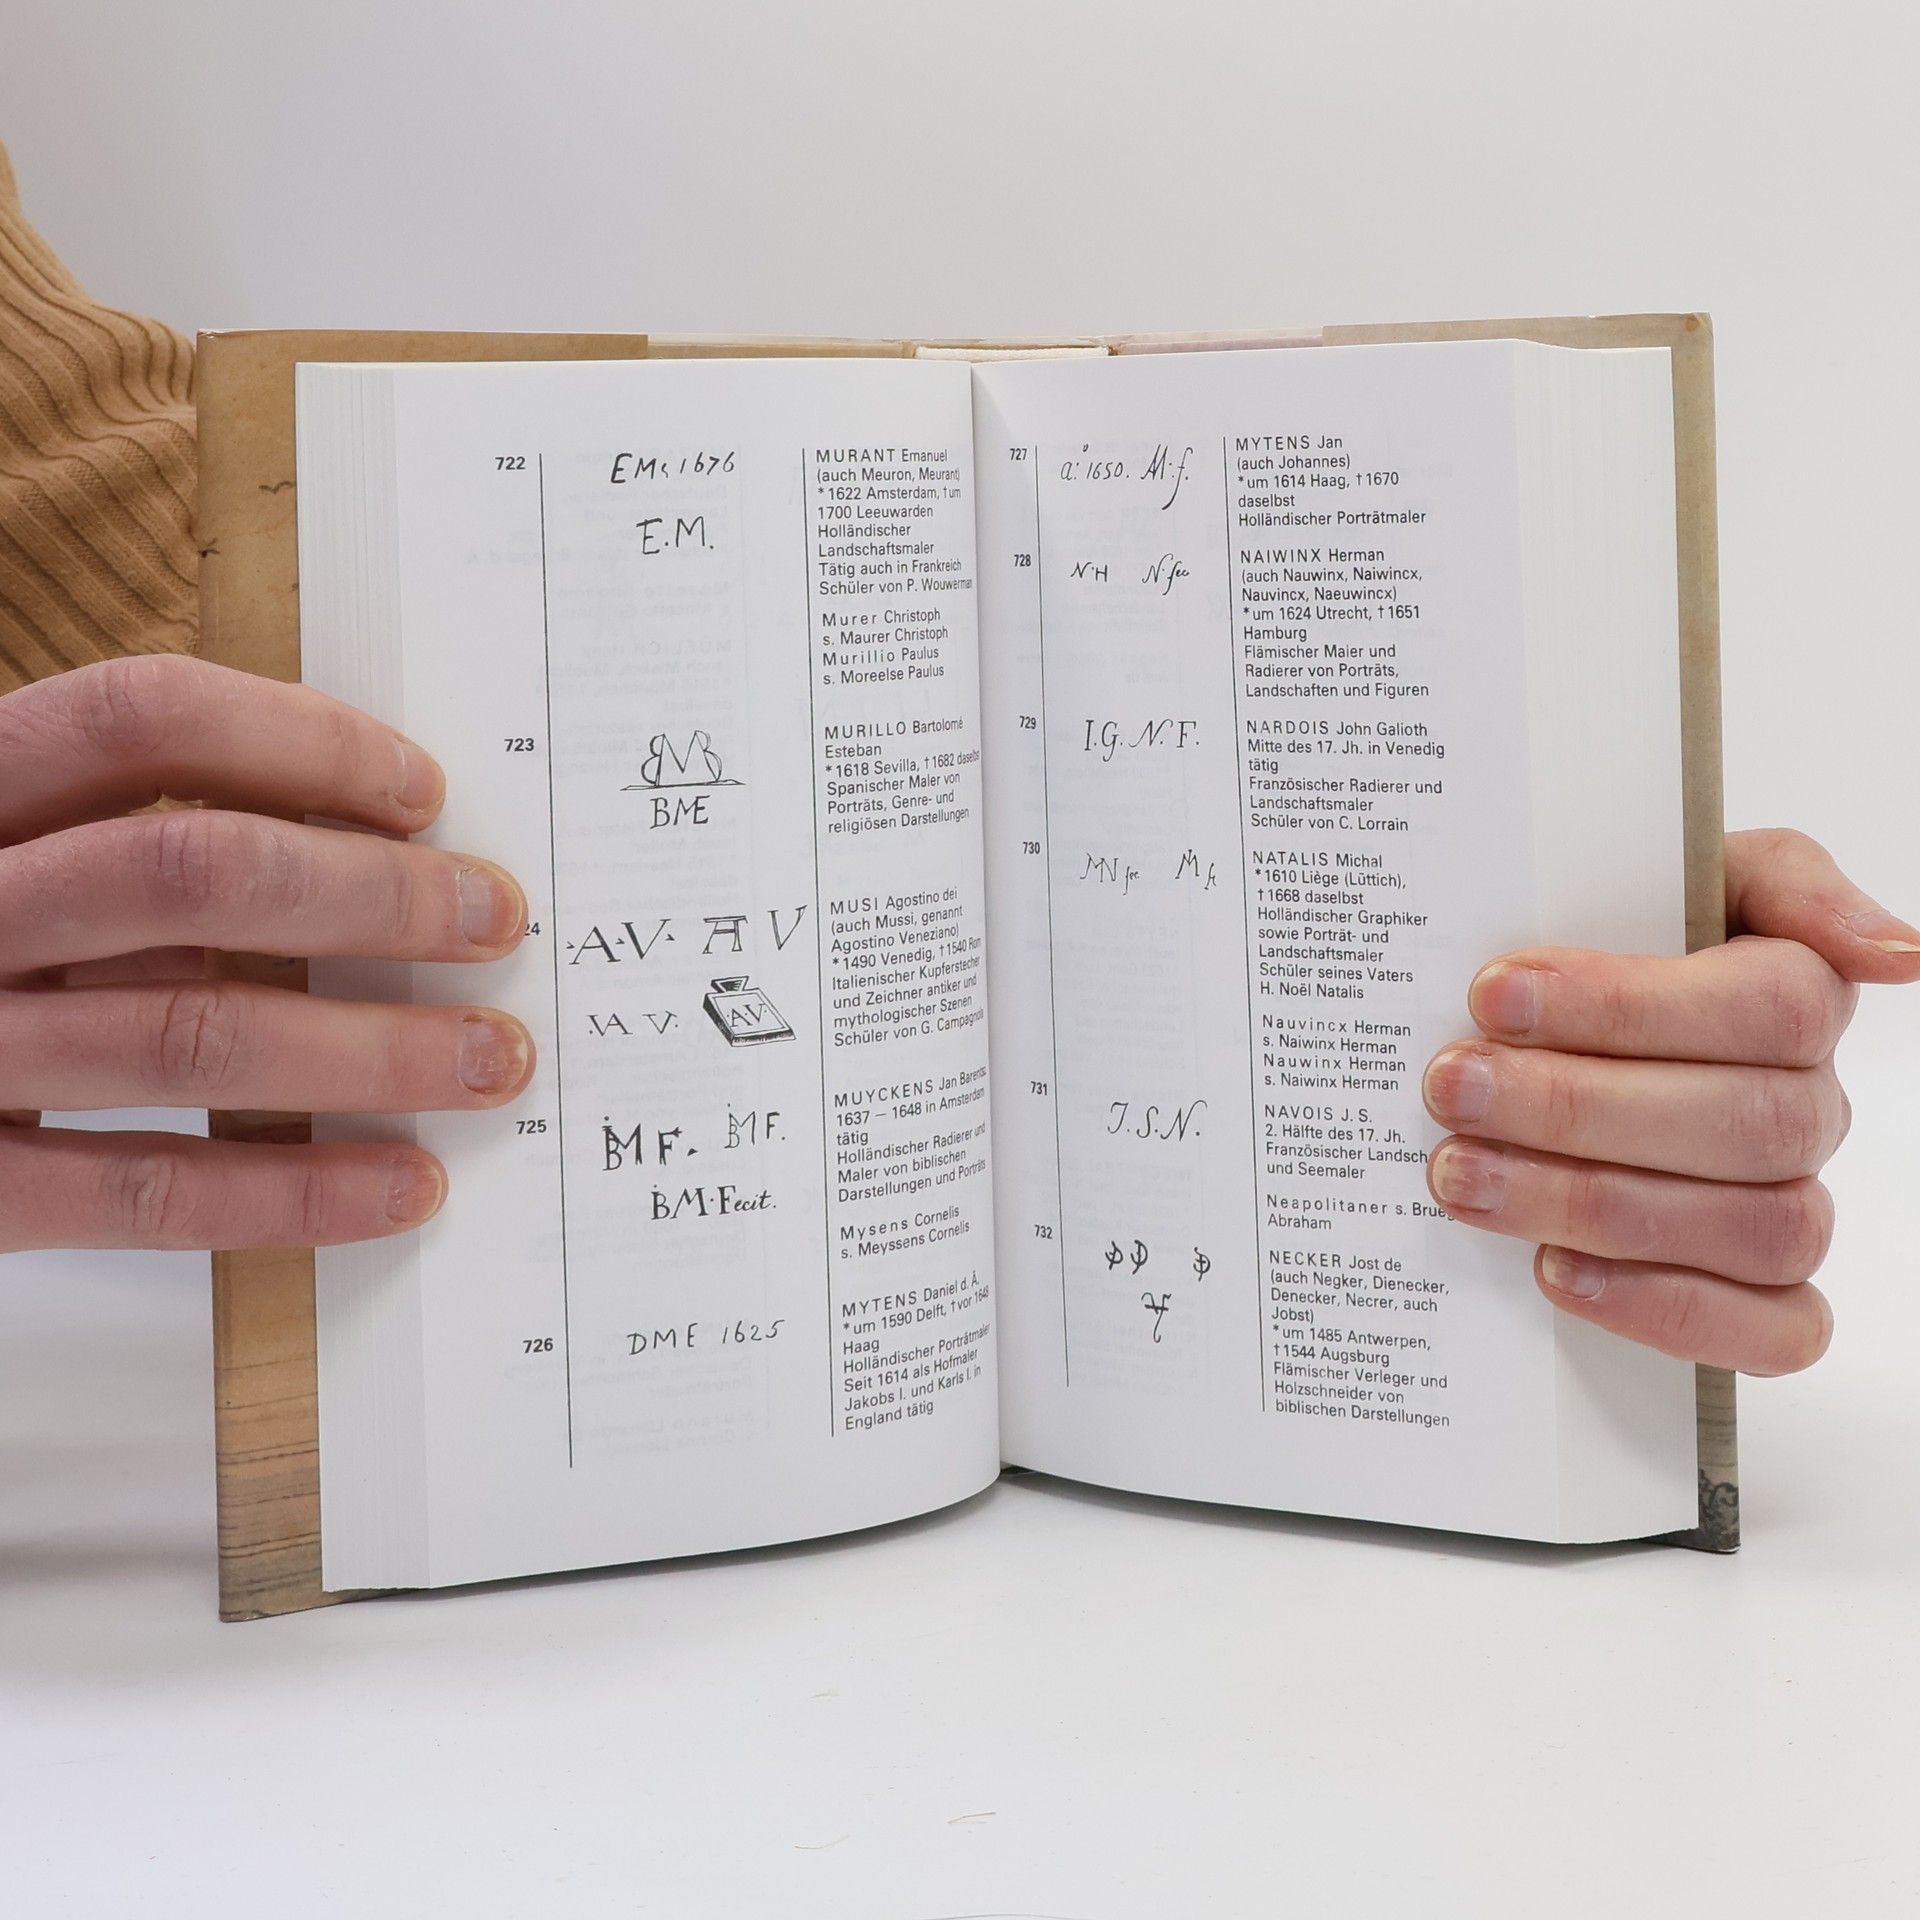 722
EMs 1676
E.M.
MURANT Emanuel
(auch Meuron, Meurant)
* 1622 Amsterdam, † um
1700 Leeuwarden
Holländischer
Landschaftsmaler
Tätig auch in Frankreich
Schüler von P. Wouwerman
Murer Christoph
s. Maurer Christoph
Murillio Paulus
s. Moreelse Paulus
723
BME
MURILLO Bartolomé
Esteban
* 1618 Sevilla, † 1682 daselbst
Spanischer Maler von
Porträts, Genre- und
religiösen Darstellungen
24
·A·V· A V
.VA V.
·A·V·
MUSI Agostino dei
(auch Mussi, genannt
Agostino Veneziano)
* 1490 Venedig, † 1540 Rom
Italienischer Kupferstecher
und Zeichner antiker und
mythologischer Szenen
Schüler von G. Campagnola
725
BM F. BM F.
BM·Fecit.
MUYCKENS Jan Barentsz
1637 – 1648 in Amsterdam
tätig
Holländischer Radierer und
Maler von biblischen
Darstellungen und Porträts
Mysens Cornelis
s. Meyssens Cornelis
726
DME 1625
MYTENS Daniel d. Ä.
* um 1590 Delft, † vor 1648
Haag
Holländischer Porträtmaler
Seit 1614 als Hofmaler
Jakobs I. und Karls I. in
England tätig
727
a: 1650. M:f.
MYTENS Jan
(auch Johannes)
* um 1614 Haag, † 1670
daselbst
Holländischer Porträtmaler
728
N·H N·fec
NAIWINX Herman
(auch Nauwinx, Naiwincx,
Nauvincx, Naeuwincx)
* um 1624 Utrecht, † 1651
Hamburg
Flämischer Maler und
Radierer von Porträts,
Landschaften und Figuren
729
I.G. N. F.
NARDOIS John Galioth
Mitte des 17. Jh. in Venedig
tätig
Französischer Radierer und
Landschaftsmaler
Schüler von C. Lorrain
730
MN fec.
NATALIS Michal
* 1610 Liège (Lüttich),
† 1668 daselbst
Holländischer Graphiker
sowie Porträt- und
Landschaftsmaler
Schüler seines Vaters
H. Noël Natalis
Nauvincx Herman
s. Naiwinx Herman
Nauwinx Herman
s. Naiwinx Herman
731
J.S.N.
NAVOIS J. S.
2. Hälfte des 17. Jh.
Französischer Landsch
und Seemaler
Neapolitaner s. Brueg
Abraham
732
NECKER Jost de
(auch Negker, Dienecker,
Denecker, Necrer, auch
Jobst)
* um 1485 Antwerpen,
† 1544 Augsburg
Flämischer Verleger und
Holzschneider von
biblischen Darstellungen